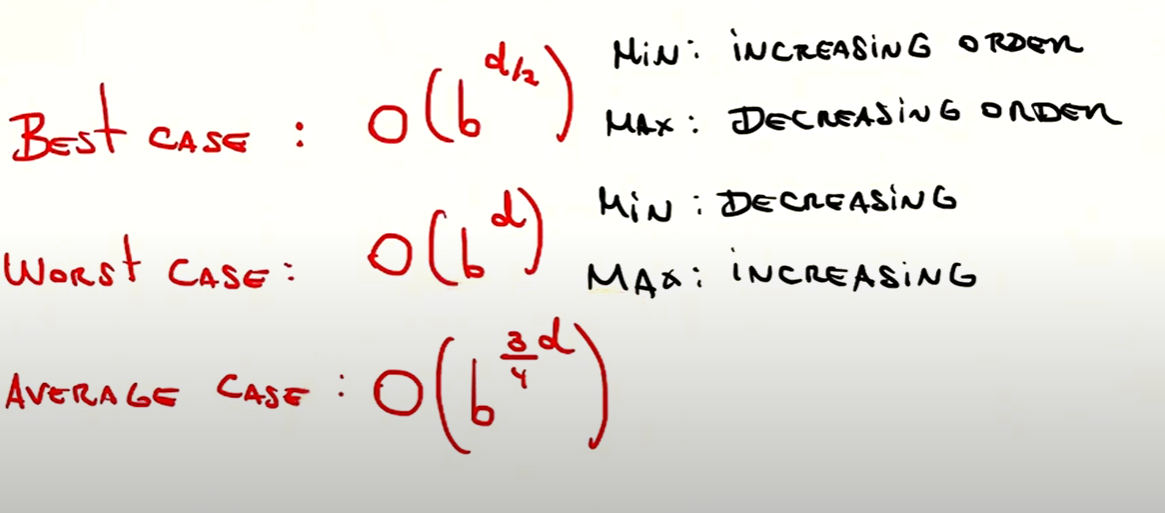 BEST CASE : O(b^{d/2}) MIN: INCREASING ORDER
MAX: DECREASING ORDER
WORST CASE: O(b^{d}) MIN : DECREASING
MAX: INCREASING
AVERAGE CASE : O(b^{\frac{3}{4}d})